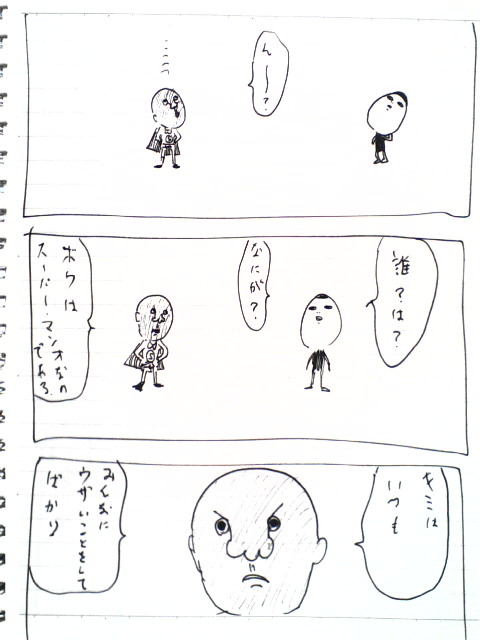 ん〜?
誰?は?
なにが?
ボクは
スーパー!マンオなの
である。
キミは
いつも
みんなに
ウザいことをして
ばかり